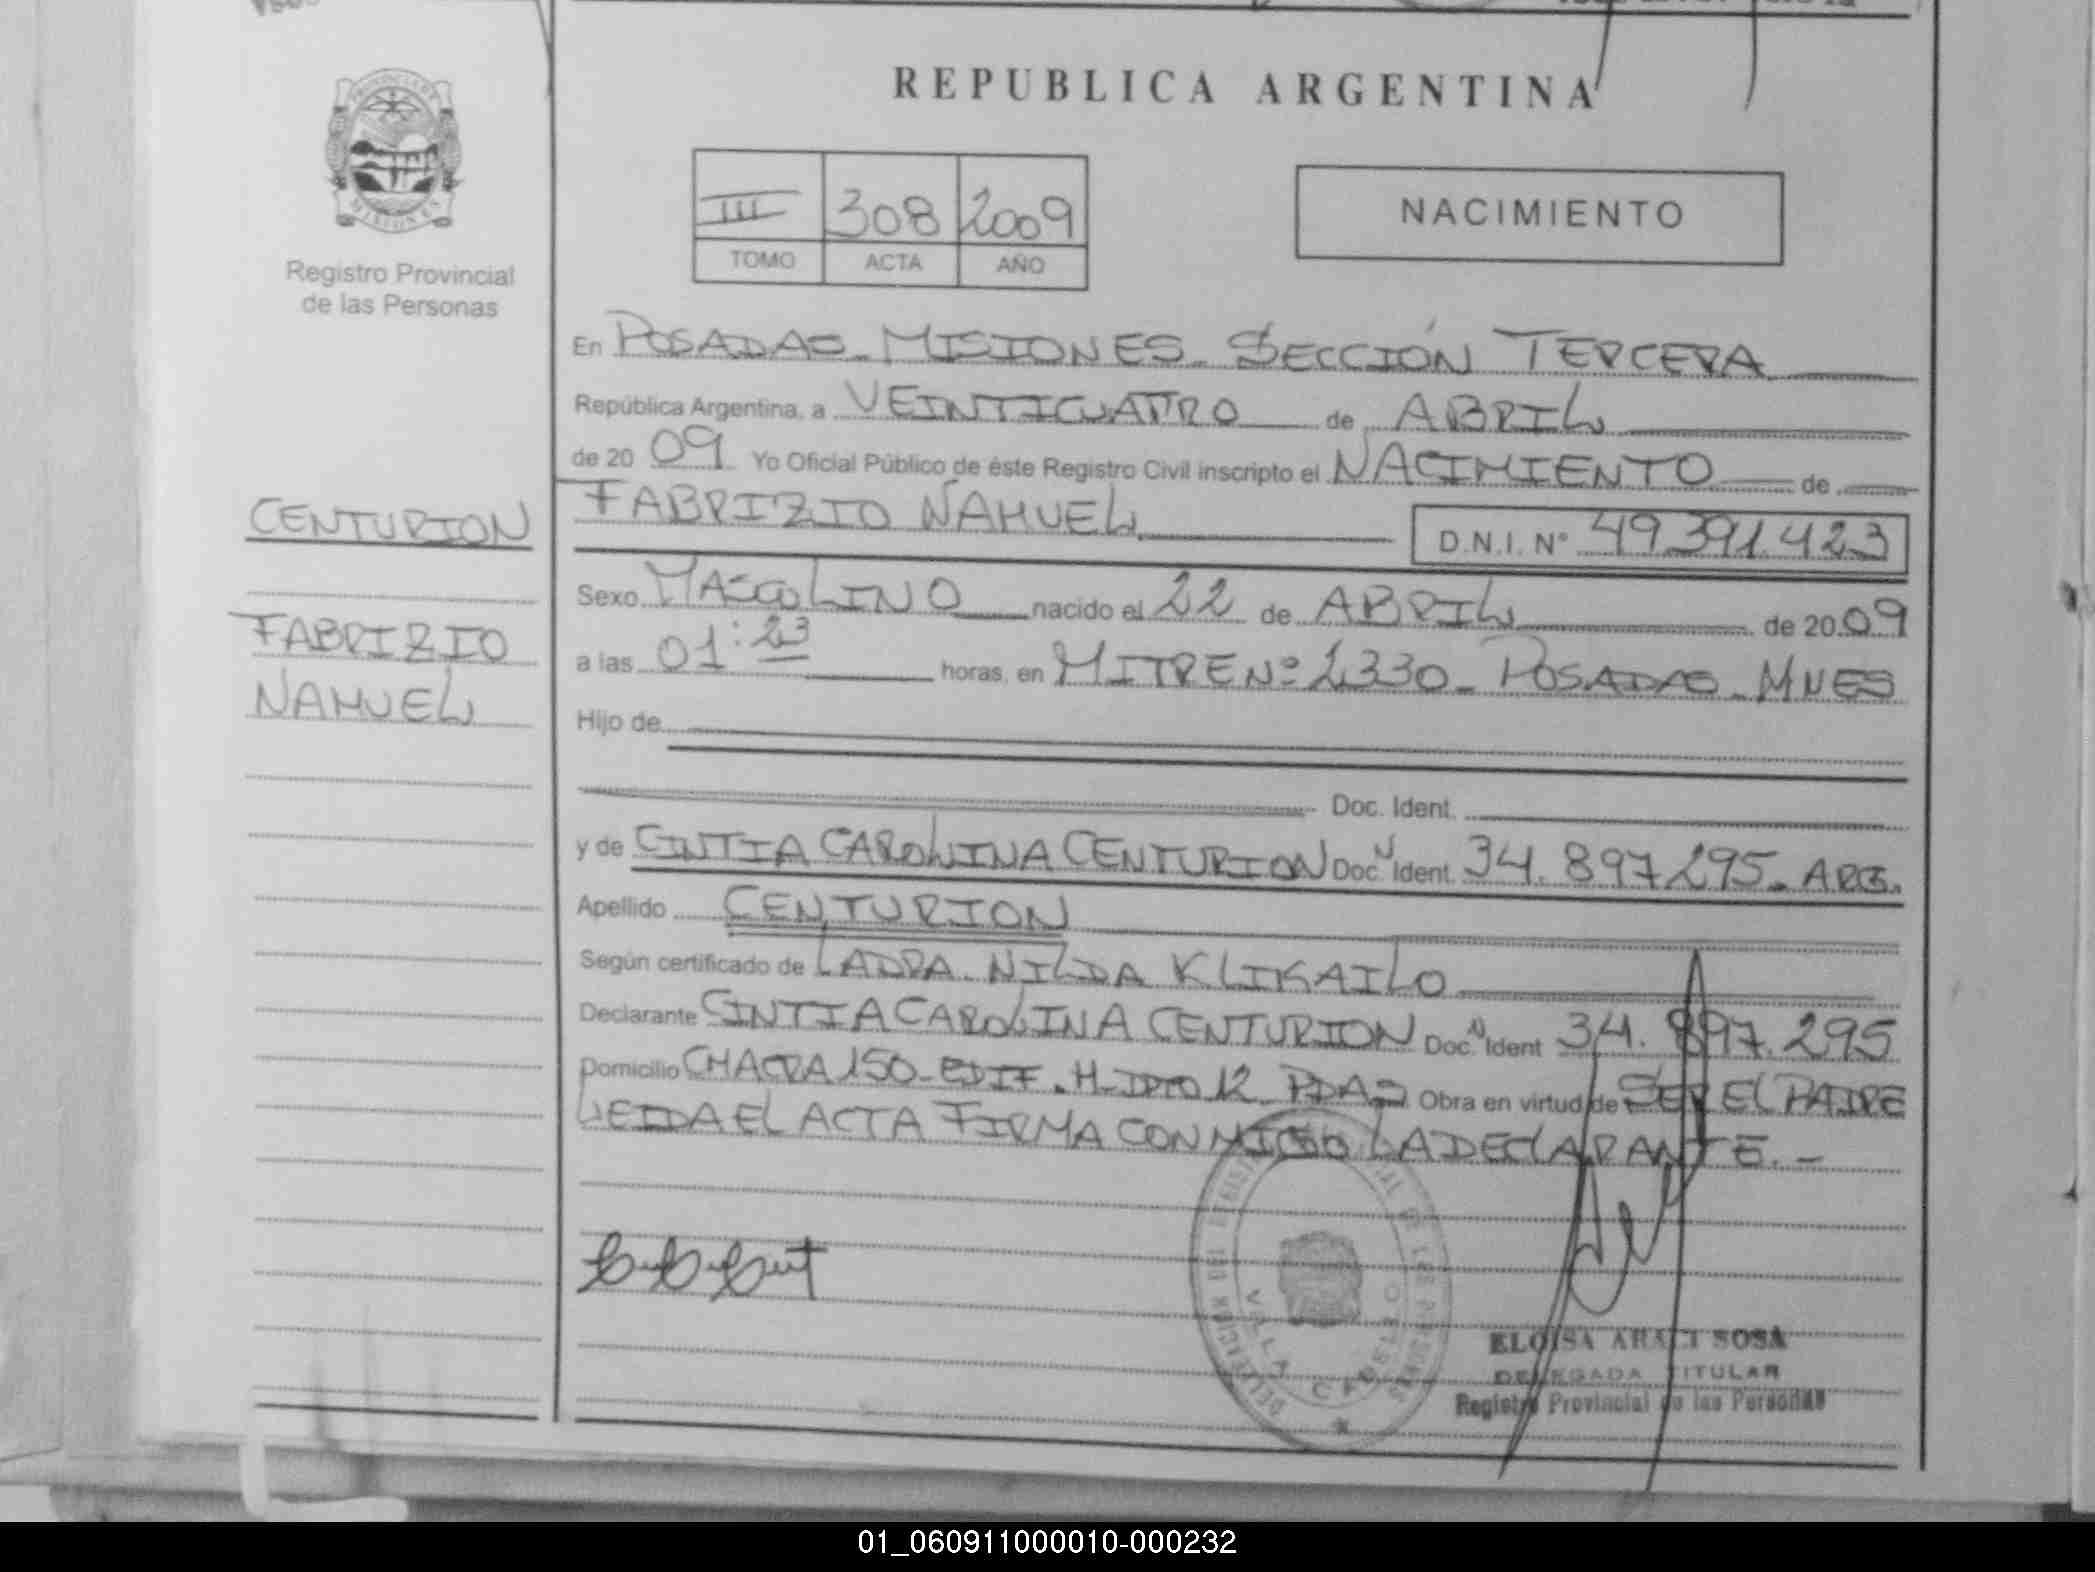 REPUBLICA ARGENTINA
PROVINCIA DE
MISIONES
Registro Provincial
de las Personas
III 308 2009
TOMO ACTA AÑO
NACIMIENTO
En POSADAS - MISIONES - SECCIÓN TERCERA
República Argentina, a VEINTICUATRO de ABRIL
de 20 09 Yo Oficial Público de éste Registro Civil inscripto el NACIMIENTO de
CENTURION
FABRIZIO NAHUEL D.N.I. Nº 49.391.423
Sexo MASCULINO nacido el 22 de ABRIL de 2009
FABRIZIO
NAHUEL
a las 01:23 horas, en MITRE Nº 2330 - POSADAS - MNES
Hijo de
Doc. Ident.
y de CINTIA CAROLINA CENTURION Doc. N Ident. 34.897.295 - ARG.
Apellido CENTURION
Según certificado de LADRA. NILDA KLIKAILO
Declarante CINTIA CAROLINA CENTURION Doc. N Ident 34.897.295
Domicilio CHACRA 150 - EDIF. H - DPTO 12 - PDAS Obra en virtud de SER EL PADRE
LEIDA EL ACTA FIRMA CONMIGO LA DECLARANTE. -
DELEGACION DEL REGISTRO PROVINCIAL DE LAS PERSONAS
VILLA
ELOISA ARACI SOSA
DELEGADA TITULAR
Registro Provincial de las Personas
01_060911000010-000232